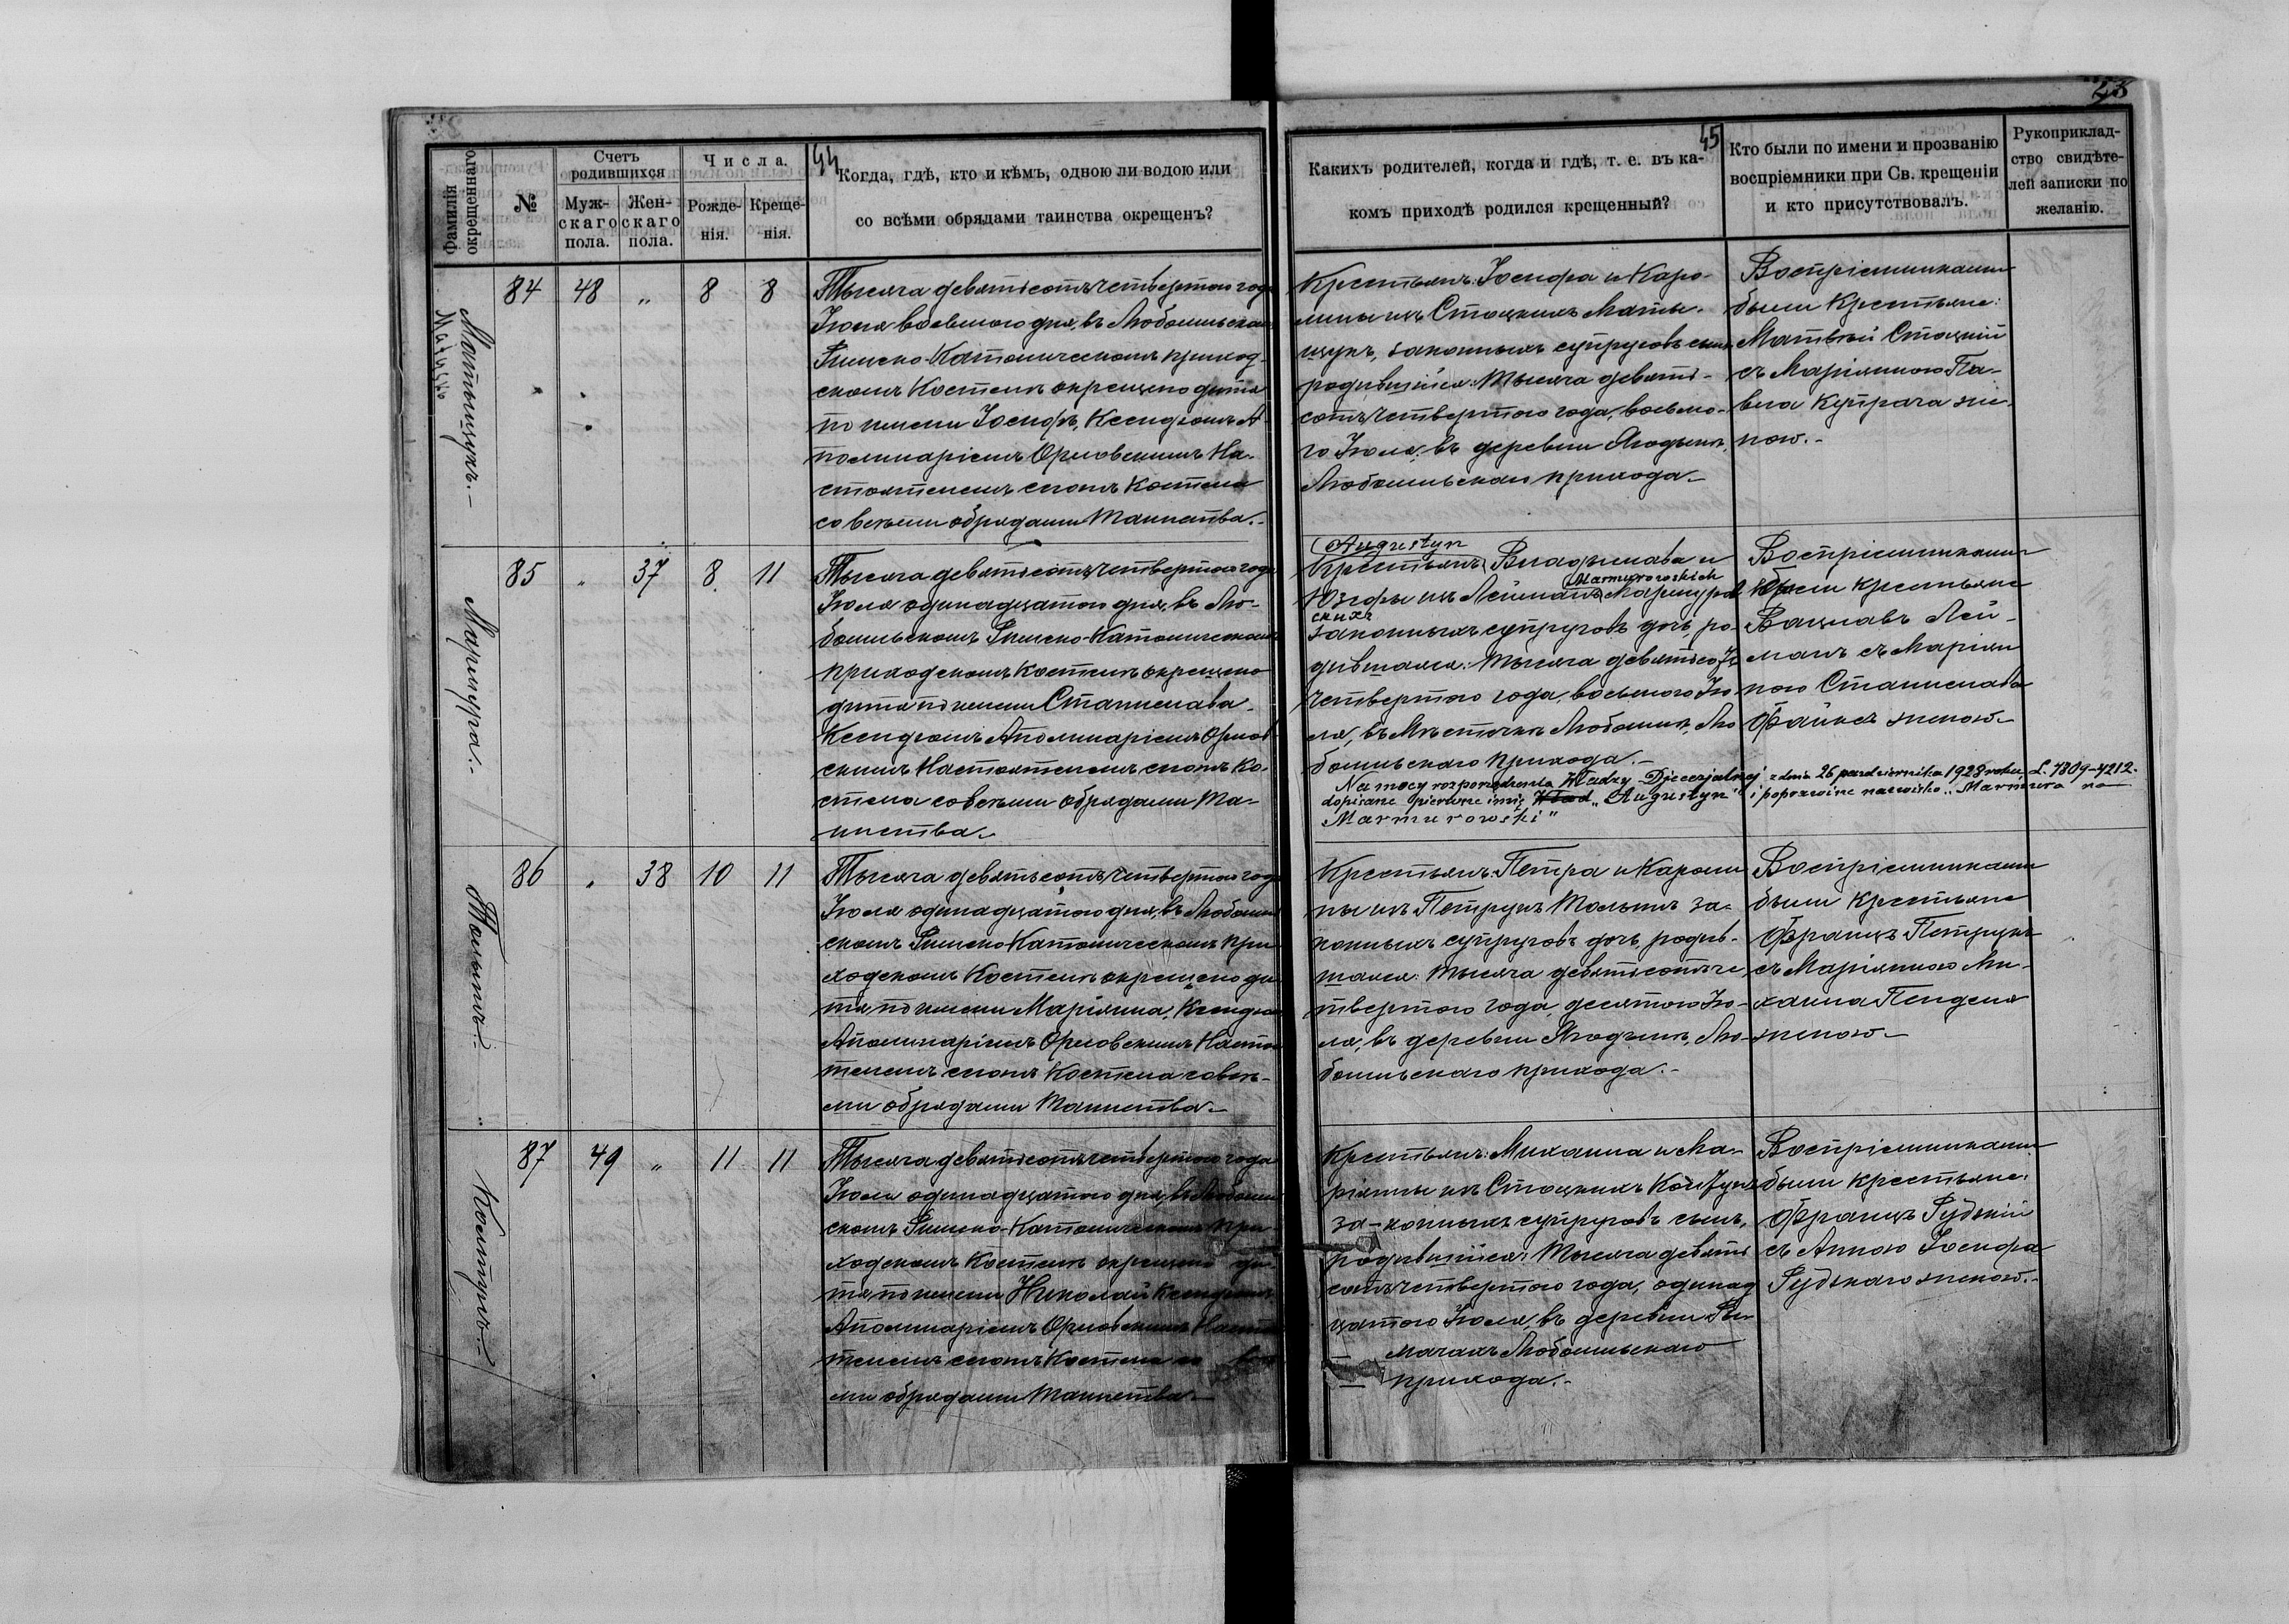 44
45
Фамилія окрещеннаго
№
Счетъ родившихся
Муж-
скаго
пола.
Жен-
скаго
пола.
Числа.
Рожде-
нія.
Креще-
нія.
Когда, гдѣ, кто и кѣмъ, одною ли водою или
со всѣми обрядами таинства окрещенъ?
Какихъ родителей, когда и гдѣ, т. е. въ ка-
комъ приходѣ родился крещенный?
Кто были по имени и прозванію
воспріемники при Св. крещеніи
и кто присутствовалъ.
Рукоприклад-
ство свидѣте-
лей записки по
желанію.
Матыщукъ.-
84 48 „ 8 8
Тысяча девятьсотъ четвертого года
Іюля восьмого дня, въ Любомльском
Римско-Католическомъ приход-
скомъ Костелѣ окрещено дитя
по имени Іосифъ, Ксендзомъ А-
полинаріемъ Орловскимъ На-
стоятелемъ сего Костела
со всѣми обрядами Таинства.-
Крестьянъ: Іосифа и Каро-
лины изъ Стоцкихъ Маты-
щукъ, законныхъ супруговъ сынъ
родившійся: Тысяча девять-
сотъ четвертого года, восьмо-
го Іюля, въ деревни Ягодынѣ,
Любомльскаго прихода.-
Воспріемниками
были Крестьяне:
Матвѣй Стоцкій
съ Маріянною Па-
вла Купрача же-
ною.-
Мармура.-
85 „ 37 8. 11
Тысяча девятьсотъ четвертого года
Іюля одинадцатого дня, въ Лю-
бомльскомъ Римско-Католическомъ
приходскомъ Костелѣ окрещено
дитя по имени Станислава
Ксендзомъ Аполинаріемъ Орлов-
скимъ Настоятелемъ сего Ко-
стела со всѣми обрядами Та-
инства.-
Augustyn
Крестьянъ Владыслава и
Marmurowskich
Юзефы изъ Лейманъ Мармуров
скихъ
законныхъ супруговъ дочь, ро-
дившаяся: Тысяча девятьсотъ
четвертого года, восьмого Ію
ля, въ Мѣстечкѣ Любомлѣ, Лю
бомльскаго прихода.-
Na mocy rozporządzenia Władzy Djecezjalnej z dnia 26 października 1928 roku L. 7809-7212-
dopisane pierwsze imię „Augustyn" i poprawione nazwisko „Marmura" na
„Marmurowski"
Воспріемниками
были крестьяне
Вацлавъ Лей-
манъ съ Маріян
ною Станислава
Файка женою-
86 „ 38 10 11
Тысяча девятьсотъ четвертого года
Іюля одинадцатого дня, въ Любомль
скомъ Римско-Католическомъ при-
ходскомъ Костелѣ окрещено ди-
тя по имени Маріянна, Ксендзом
Аполинаріемъ Орловскимъ Настоя
телемъ сего Костела со всѣ-
ми обрядами Таинства.-
Крестьянъ: Петра и Кароли
ны изъ Петрукъ за-
конныхъ супруговъ дочь, родив-
шаяся: Тысяча девятьсотъ че
твертого года, десятого Ію-
ля, въ деревни Ягодынѣ, Лю-
бомльскаго прихода.-
Воспріемниками
были крестьяне
Францъ Петрукъ
съ Маріянною Ми-
хаила
женою-
87 49 „ 11 11
Тысяча девятьсотъ четвертого года
Іюля одинадцатого дня, въ Любомль
скомъ Римско-Католическомъ при-
ходскомъ Костелѣ окрещено ди-
тя по имени Николай Ксендзомъ
Аполинаріемъ Орловскимъ Настоя
телемъ сего Костела со всѣ
ми обрядами Таинства.-
Крестьянъ: Михаила и Ма-
ріянны изъ Стоцкихъ
за-конныхъ супруговъ сынъ,
родившійся: Тысяча девять
сотъ четвертого года, одинад
цатого Іюля, въ деревни Ри-
мачахъ Любомльскаго
прихода.-
Воспріемниками
были крестьяне:
Францъ Рудскій
съ Анною Іосифа
Рудскаго женою.-